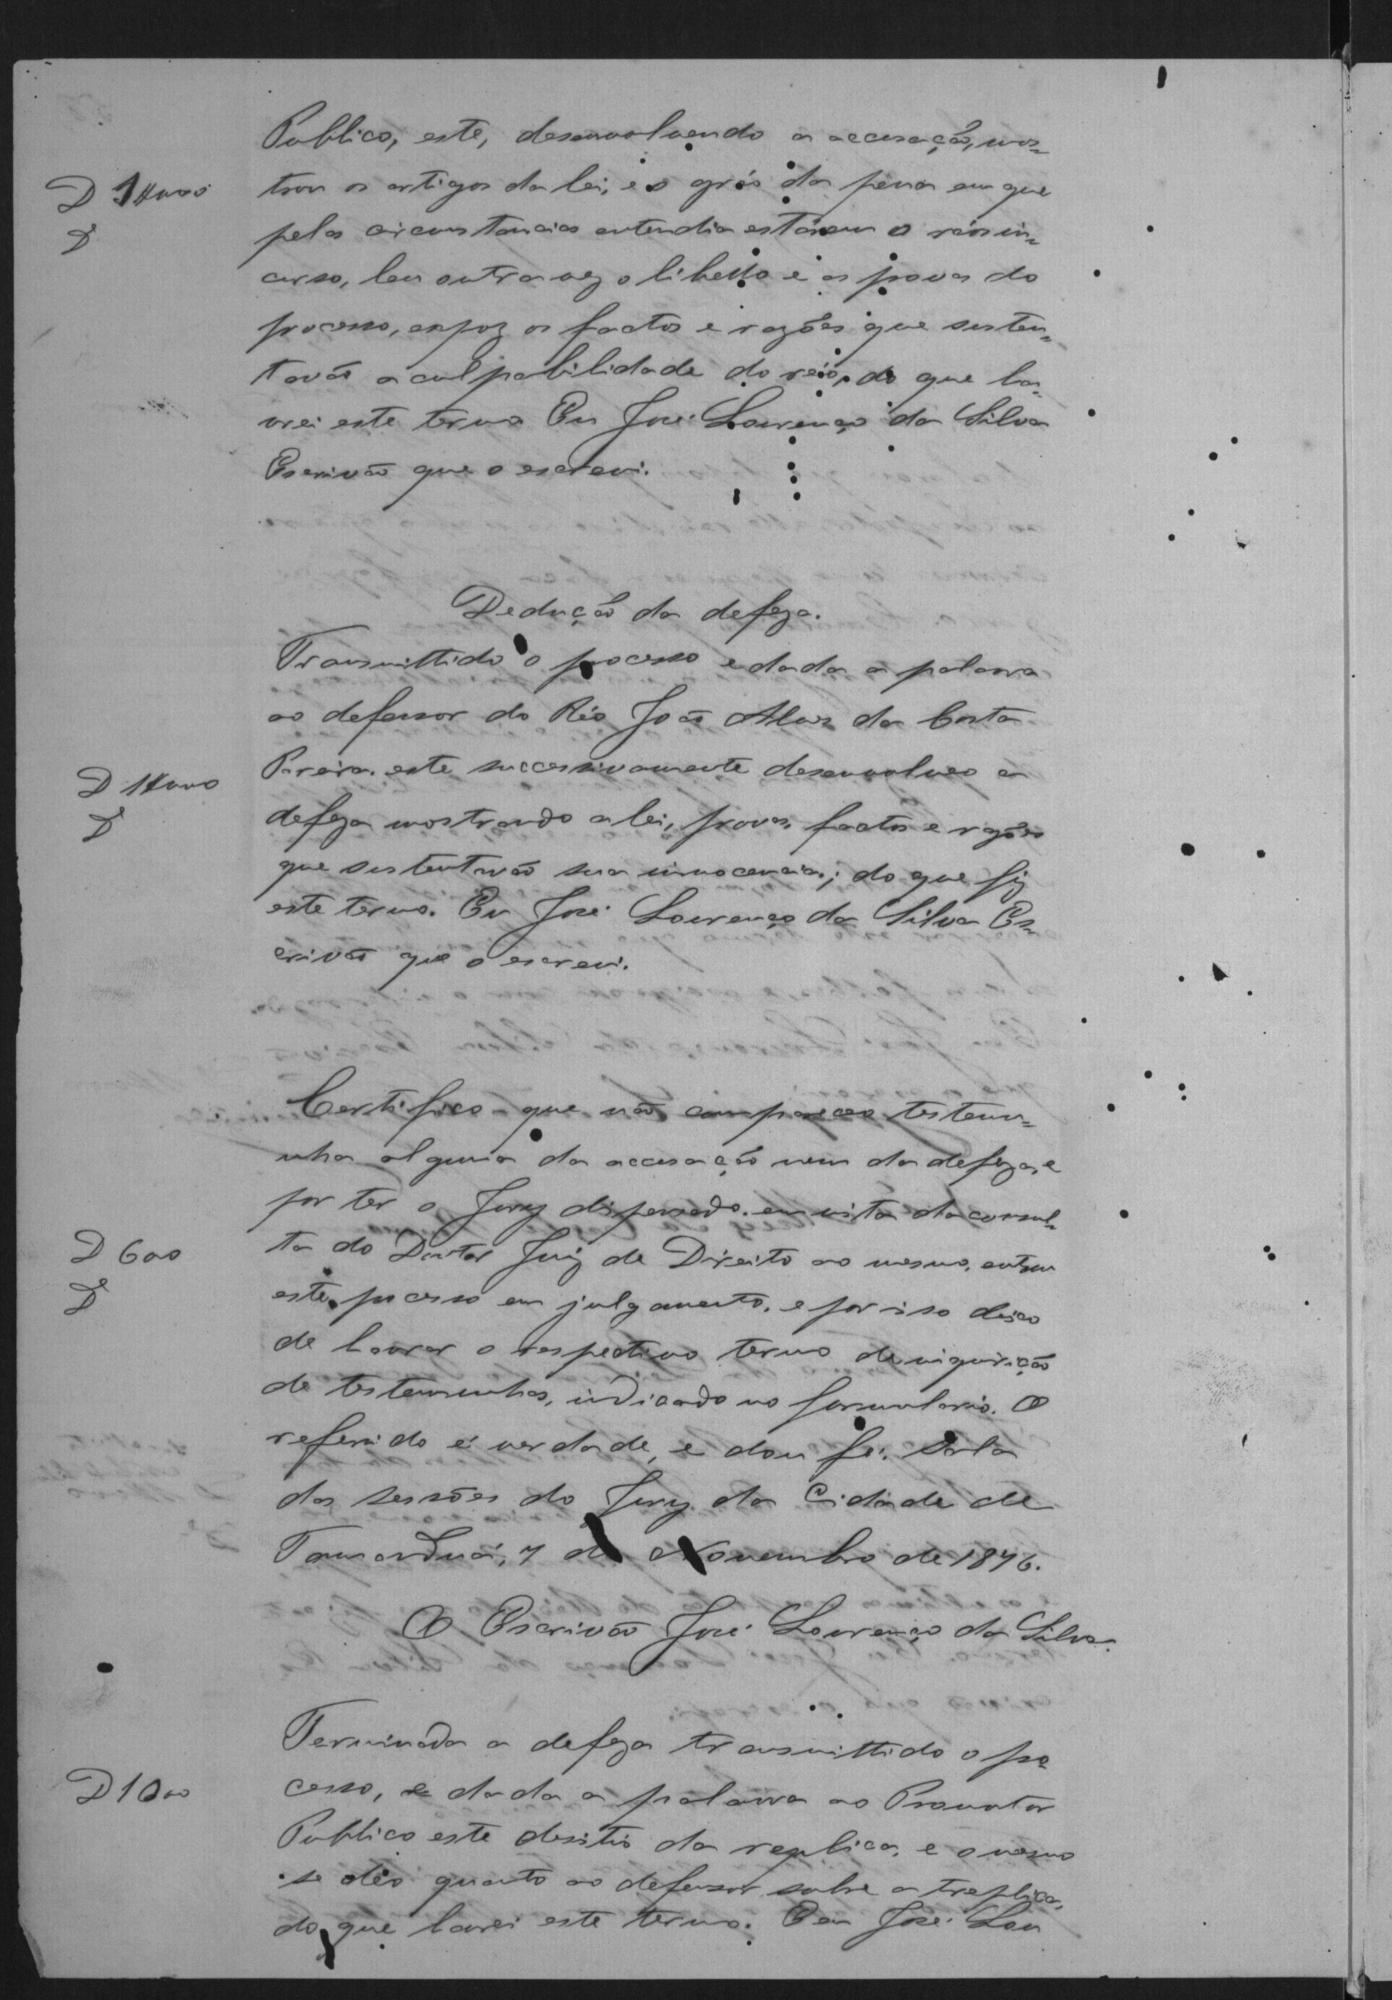 Publico, este, desenvolvendo a accusação, mos=
D 1$000
trou os artigos da lei, e o gráo da pena em que
D
pelas circunstancias entendia estar o réo in=
curso, leu outra vez o libello e as provas do
processo, expoz os factos e razões que susten=
tavão a culpabilidade do réo, do que la=
vrei este termo Eu José Lourenço da Silva
Escrivão que o escrevi.
Dedução da defeza.
Transmittido o processo e dada a palavra
ao defensor do Réo João Alves da Costa
D 1$000
Pereira. este successivamente desenvolveo a
D
defeza mostrando a lei, provas, factos e razões
que sustentavão sua innocencia; do que fiz
este termo. Eu José Lourenço da Silva Es=
crivão que o escrevi.
Certifico que não compareceo testemu=
nha alguma da accusação nem da defeza, e
por ter o Jury dispensado. em vista da consul=
D 600
ta do Doutor Juiz de Direito ao mesmo, entrou
D
este processo em julgamento, e por isso deixo
de lavrar o respectivo termo de inquirição
de testemunhas, indicado no formulario. O
referido é verdade, e dou fé. Sala
das sessões do Jury da Cidade de
Tamanduá, 7 de Novembro de 1876.
O Escrivão José Lourenço da Silva.
Terminada a defeza transmittido o pro
D 1000
cesso, e dada a palavra ao Promotor
Publico este desistio da replica, e o mesmo
se deo quanto ao defensor sobre a treplica,
do que lavrei este termo. Eu José Lou